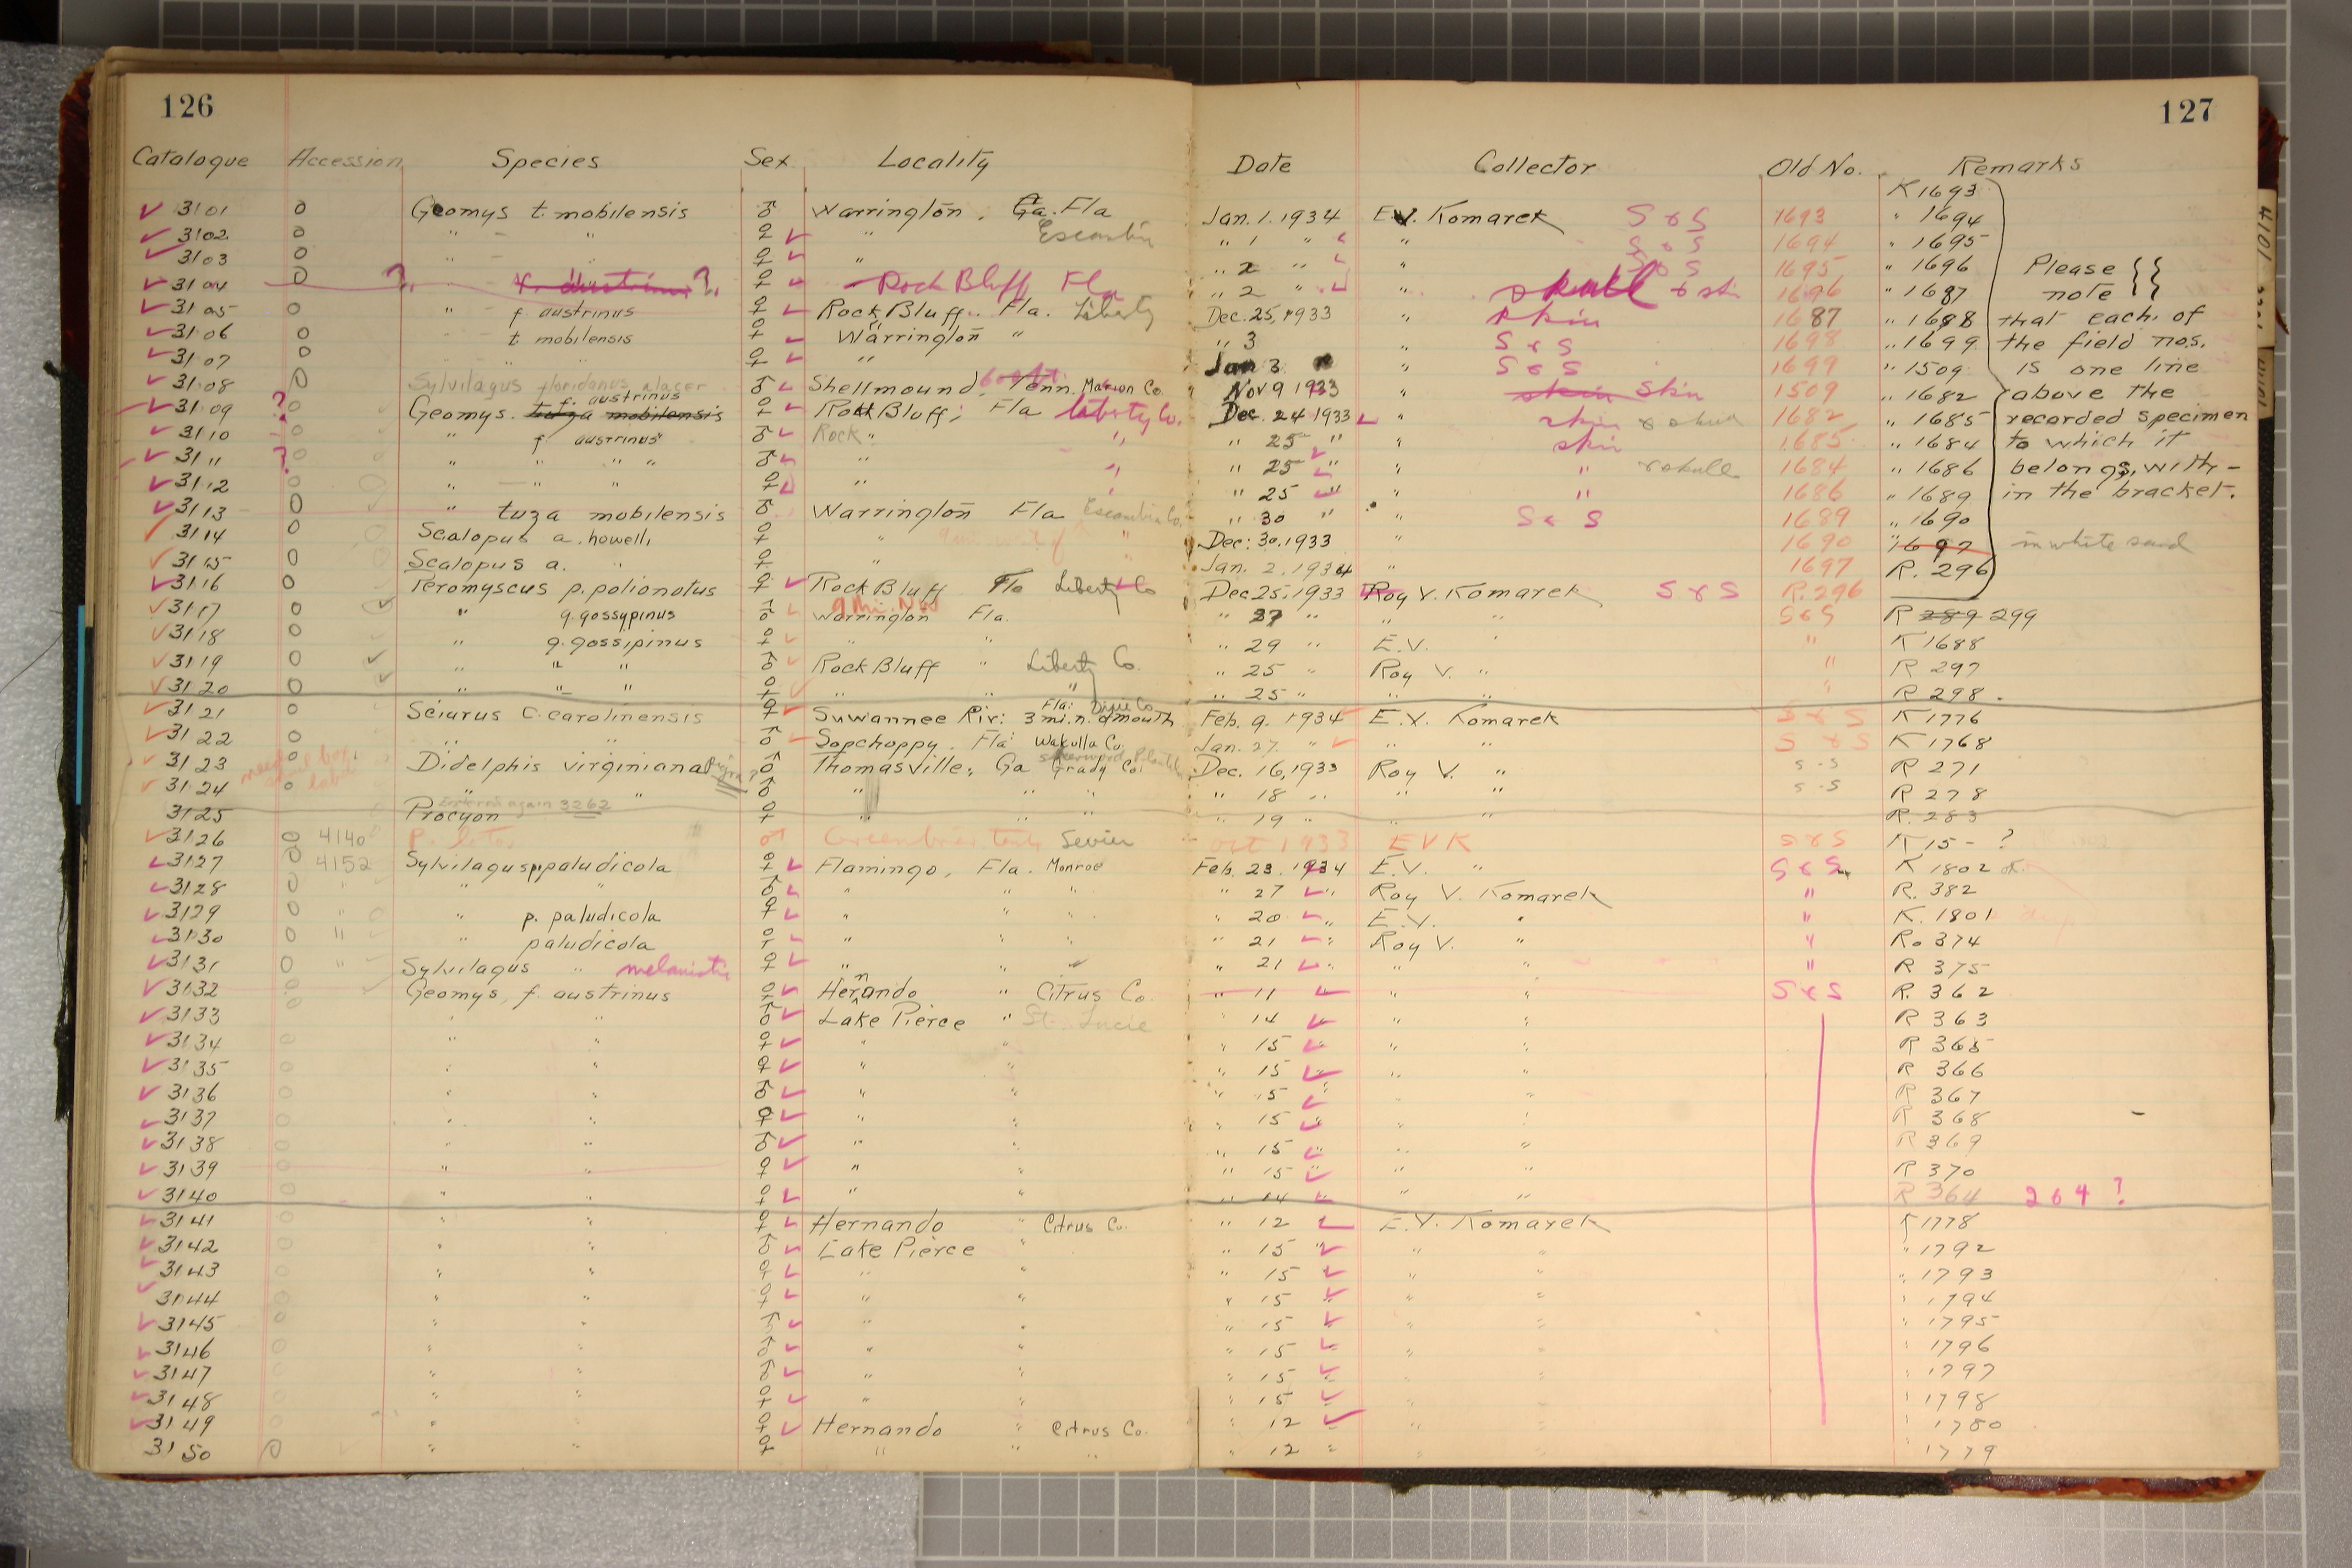 126
127
Catalogue Accession Species Sex Locality Date Collector Old No. Remarks
K 1693
3101 0 Geomys t. mobilensis ♂ Warrington, Ga. Fla Jan. 1. 1934 E.V. Komarek S & S 1693 " 1694
3102 0 " " " ♀ " Escambia " 1 " " S & S 1694 " 1695
3103 0 " " ♀ " " 2 " " S & S 1695 " 1696 Please
3104 0 ? f. austrinus ? ♀ Rock Bluff Fla " 2 " " skull & skin 1696 " 1687 note
3105 0 " f. austrinus ♀ Rock Bluff. Fla. Liberty Dec. 25, 1933 " skin 1687 " 1698 that each of
3106 0 t mobilensis ♀ Warrington " " 3 " S & S 1698 " 1699 the field nos.
3107 0 " " ♀ " Jan 3 " S & S 1699 " 1509 is one line
3108 0 Sylvilagus floridanus alacer ♂ Shellmound, Tenn. Marion Co. Nov 9 1933 " skin skin 1509 " 1682 above the
3109 ? 0 Geomys. tuza mobilensis f. austrinus ♀ Rock Bluff, Fla liberty Co. Dec. 24 1933 " skin & skull 1682 " 1685 recorded specimen
3110 0 " f. austrinus ♂ Rock " " " 25 " " skin 1685 " 1684 to which it
3111 ? 0 " " " " ♂ " " " 25 " " " & skull 1684 " 1686 belongs, with-
3112 0 " " " ♀ " " " 25 " " " 1686 " 1689 in the bracket.
3113 0 " tuza mobilensis ♂ Warrington Fla Escambia Co. " 30 " " S & S 1689 " 1690
3114 0 Scalopus a. howelli ♀ " " Dec. 30. 1933 " 1690 1697 in white sand
3115 0 Scalopus a. " ♀ " " Jan. 2. 1934 " 1697 R. 296
3116 0 Peromyscus p. polionotus ♀ Rock Bluff Fla Liberty Co Dec 25. 1933 Roy V. Komarek S & S R. 296
3117 0 " g. gossypinus ♂ 9 Mi. NW Warrington Fla. " 27 " " " S & S R 289 299
3118 0 " g. gossipinus ♀ " " " 29 " E.V. " " K 1688
3119 0 " " " ♂ Rock Bluff " Liberty Co. " 25 " Roy V. " " R 297
3120 0 " " " ♀ " " " " 25 " " " " R 298.
3121 0 Sciurus c. carolinensis ♀ Suwannee Riv. 3 mi. n. of mouth Fla. Dixie Co Feb. 9. 1934 E.V. Komarek S & S K 1776
3122 0 " " ♂ Sopchoppy. Fla Wakulla Co. Jan. 27. " " " S & S K 1768
3123 0 Didelphis virginiana pigra ? ♂ Thomasville, Ga Grady Co. Dec. 16, 1933 Roy V. " S-S R 271
3124 0 " " ♂ " " " " 18 " " " S-S R 278
3125 Procyon Entered again 3262 ♀ " " " " 19 " " R. 283
3126 0 4140 P. lotor ♂ Greenbrier Tenn Sevier Oct 1933 EVK S & S K 15- ?
3127 0 4152 Sylvilagus p. paludicola ♀ Flamingo, Fla. Monroe Feb. 23. 1934 E.V. " S & S K 1802
3128 0 " " " ♂ " " " " 27 " Roy V. Komarek " R. 382
3129 0 " " p. paludicola ♀ " " " " 20 " E.V. " " K. 1801
3130 0 " " paludicola ♀ " " " " 21 " Roy V. " " R. 374
3131 0 " Sylvilagus " melanistic ♀ " " " " 21 " " " " R 375
3132 0 Geomys, f. austrinus ♀ Hernando " Citrus Co. " 11 " " S & S R. 362
3133 0 " " ♂ Lake Pierce " St. Lucie " 14 " " R 363
3134 0 " " ♀ " " " 15 " " " R 365
3135 0 " " ♀ " " " 15 " " " R 366
3136 0 " " ♂ " " " 15 " " " R 367
3137 0 " " ♀ " " " 15 " " " R 368
3138 0 " " ♂ " " " 15 " " " R 369
3139 0 " " ♀ " " " 15 " " " R 370
3140 0 " " ♀ " " " 14 " " " R 364 264 ?
3141 0 " " ♀ Hernando " Citrus Co. " 12 E.V. Komarek K 1778
3142 0 " " ♂ Lake Pierce " " 15 " " " " 1792
3143 0 " " ♀ " " " 15 " " " 1793
3144 0 " " ♀ " " " 15 " " " " 1794
3145 0 " " ♂ " " " 15 " " " " 1795
3146 0 " " ♂ " " " 15 " " " " 1796
3147 0 " " ♂ " " " 15 " " " " 1797
3148 0 " " ♀ " " " 15 " " " " 1798
3149 0 " " ♀ Hernando " Citrus Co. " 12 " " " 1780
3150 0 " " ♀ " " " " 12 " " " " 1779